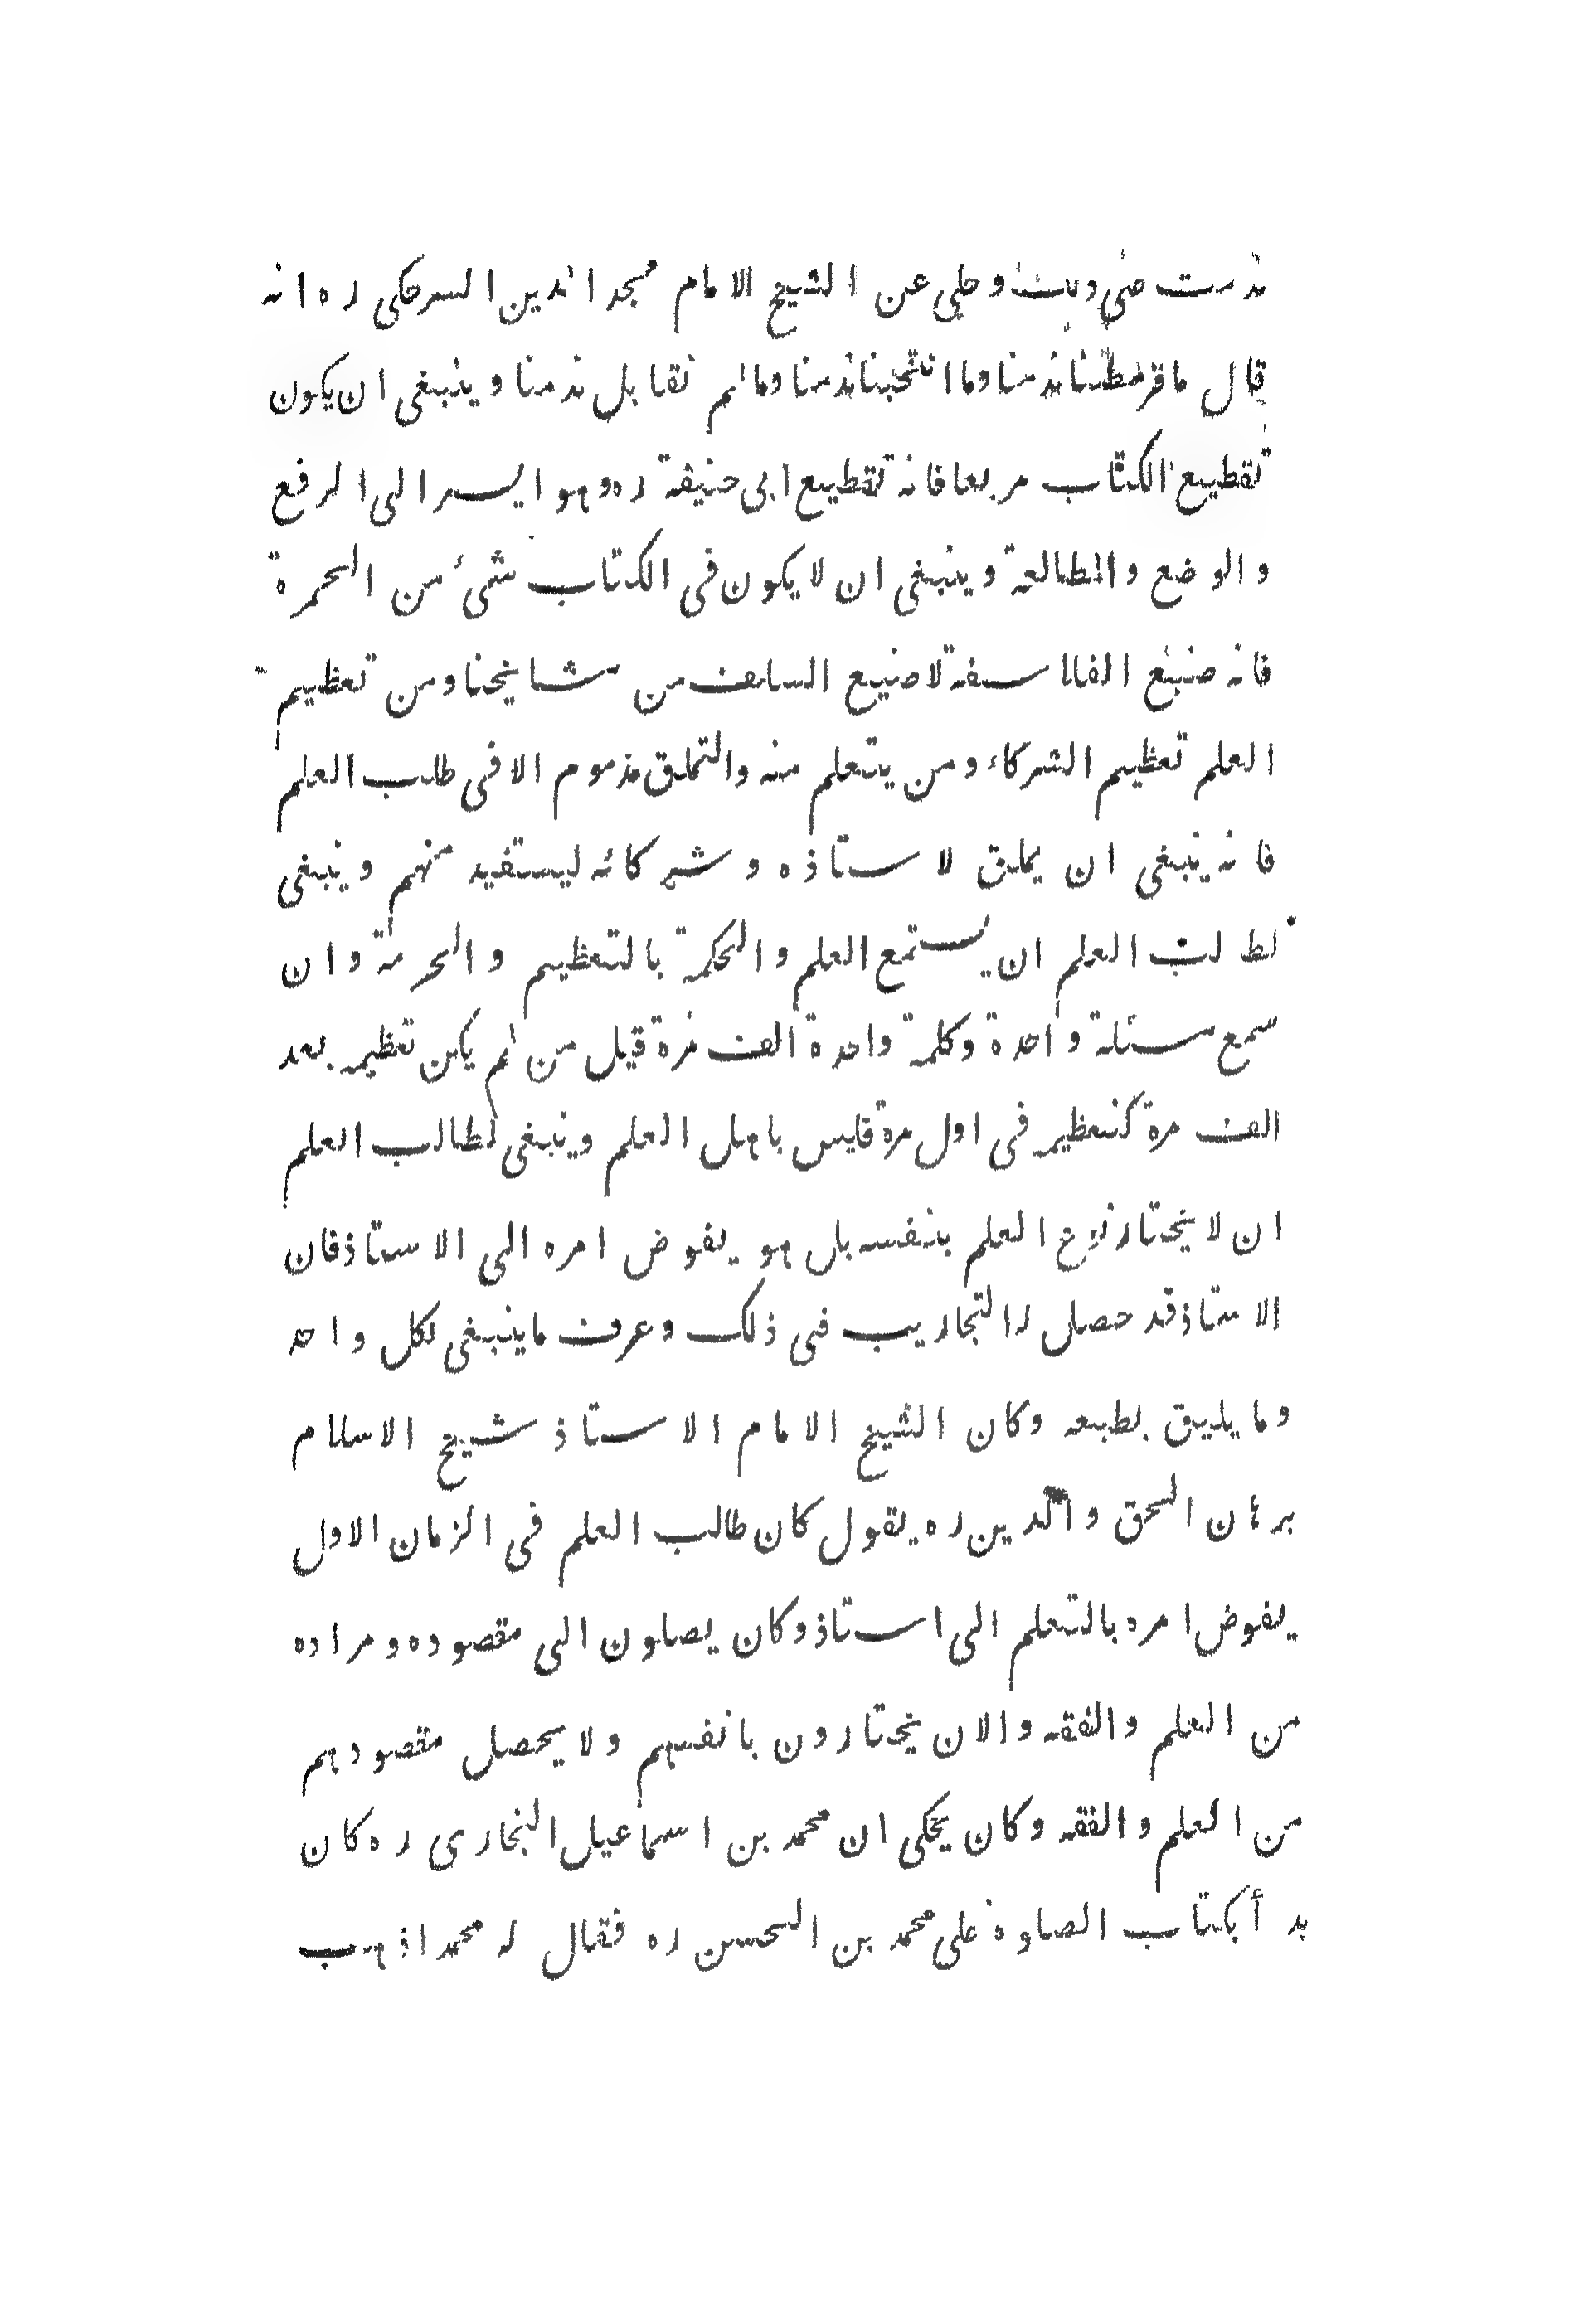 ندمت وحكى عن الشيخ الامام مجد الدين السرحكى ره انه
قال ما قرمطنا ندمنا وما انتخبنا ندمنا وما لم نقابل ندمنا وينبغى ان يكون
تقطيع الكتاب مربعا فانه تقطيع ابى حنيفة ره وهو ايسر الى الرفع
والوضع والمطالعة وينبغى ان لا يكون فى الكتاب شىء من الحمرة
فانه صنيع الفلاسفة لا صنيع السلف من مشايخنا ومن تعظيم
العلم تعظيم الشركاء ومن يتعلم منه والتملق مذموم الا فى طلب العلم
فانه ينبغى ان يملق لاستاذه وشركائه ليستفيد منهم وينبغى
لطالب العلم ان يستمع العلم والحكمة بالتعظيم والحرمة وان
سمع مسئلة واحدة وكلمة واحدة الف مرة قيل من لم يكن تعظيمه بعد
الف مرة كتعظيمه فى اول مرة فليس باهل العلم وينبغى لطالب العلم
ان لا يختار نوع العلم بنفسه بل هو يفوض امره الى الاستاذ فان
الاستاذ قد حصل له التجاريب فى ذلك وعرف ما ينبغى لكل واحد
وما يليق بطبعه وكان الشيخ الامام الاستاذ شيخ الاسلام
برهان الحق والدين ره يقول كان طالب العلم فى الزمان الاول
يفوض امره بالتعلم الى استاذ وكان يصلون الى مقصوده ومراده
من العلم والفقه والان يختارون بانفسهم ولا يحصل مقصودهم
من العلم والفقه وكان يحكى ان محمد بن اسماعيل البخارى ره كان
بدأ بكتاب الصلوة على محمد بن الحسن ره فقال له محمد اذهب